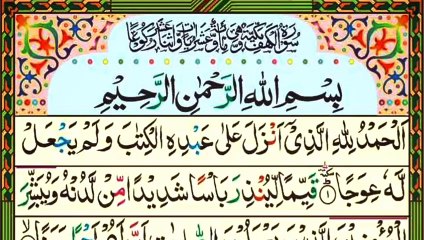 سُوْرَةُ الْكَهْفِ مَكِّيَّةٌ وَّهِيَ مِائَةٌ وَّعَشْرُ اٰيَاتٍ وَّاثْنَا عَشَرَ رُكُوْعًا
بِسْمِ اللهِ الرَّحْمٰنِ الرَّحِيْمِ
اَلْحَمْدُ لِلّٰهِ الَّذِيْۤ اَنْزَلَ عَلٰى عَبْدِهِ الْكِتٰبَ وَلَمْ يَجْعَلْ
لَّهٗ عِوَجًا ۝ قَيِّمًا لِّيُنْذِرَ بَاْسًا شَدِيْدًا مِّنْ لَّدُنْهُ وَيُبَشِّرَ